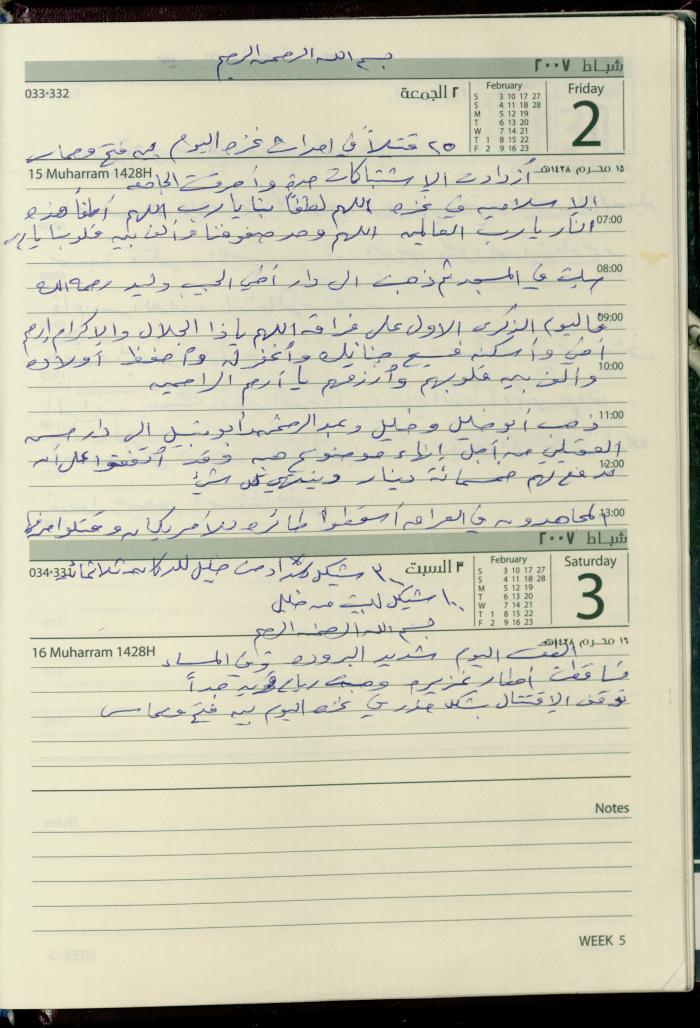 بسم الله الرحمن الرحيم
شباط ٢٠٠٧
033-332
٢ الجمعة
February
S 3 10 17 27
S 4 11 18 28
M 5 12 19
T 6 13 20
W 7 14 21
T 1 8 15 22
F 2 9 16 23
Friday
2
٢٥ قتيلاً في احداث غزه اليوم بين فتح وحماس
15 Muharram 1428H
١٥ محرم ١٤٢٨هـ
أزدادت الإشتباكات حدة وأحرقت الجامعه
الإسلاميه في غزه اللهم لطفاً بنا يا رب اللهم أطفأ هذه
07:00
النار يا رب العالمين اللهم وحد صفوفنا وألف بين قلوبنا يا رب
08:00
صليت في المسجد ثم ذهبت الى دار أخي الحبيب وليد رحمه الله
09:00
فاليوم الذكرى الاولى على فراقه اللهم يا ذا الجلال والإكرام إرحم
أخي وأسكنه فسيح جناتك وأغفر له وأحفظ أولاده
10:00
وألف بين قلوبهم وأرزقهم يا أرحم الراحمين
11:00
ذهب أبو خليل وخليل وعبد الرحمن أبو نبيل الى دار حسن
من أجل إنهاء موضوع هبه وقد أتفقوا على أن
12:00
ندفع لهم خمسمائة دينار وينتهي كل شئ
13:00
المجاهدون في العراق أسقطوا طائره للأمريكان وقتلوا من فيها
شباط ٢٠٠٧
034-331
٣ السبت
February
S 3 10 17 27
S 4 11 18 28
M 5 12 19
T 6 13 20
W 7 14 21
T 1 8 15 22
F 2 9 16 23
Saturday
3
شيكل من خليل
١٠٠ شيكل لبيت من خليل
بسم الله الرحمن الرحيم
16 Muharram 1428H
١٦ محرم ١٤٢٨هـ
الطقس اليوم شديد البروده وفي المساء
تساقطت أمطار غزيره وهبت رياح قويه جداً
توقف الإقتتال بشكل حذر في غزه اليوم بين فتح وحماس
Notes
WEEK 5